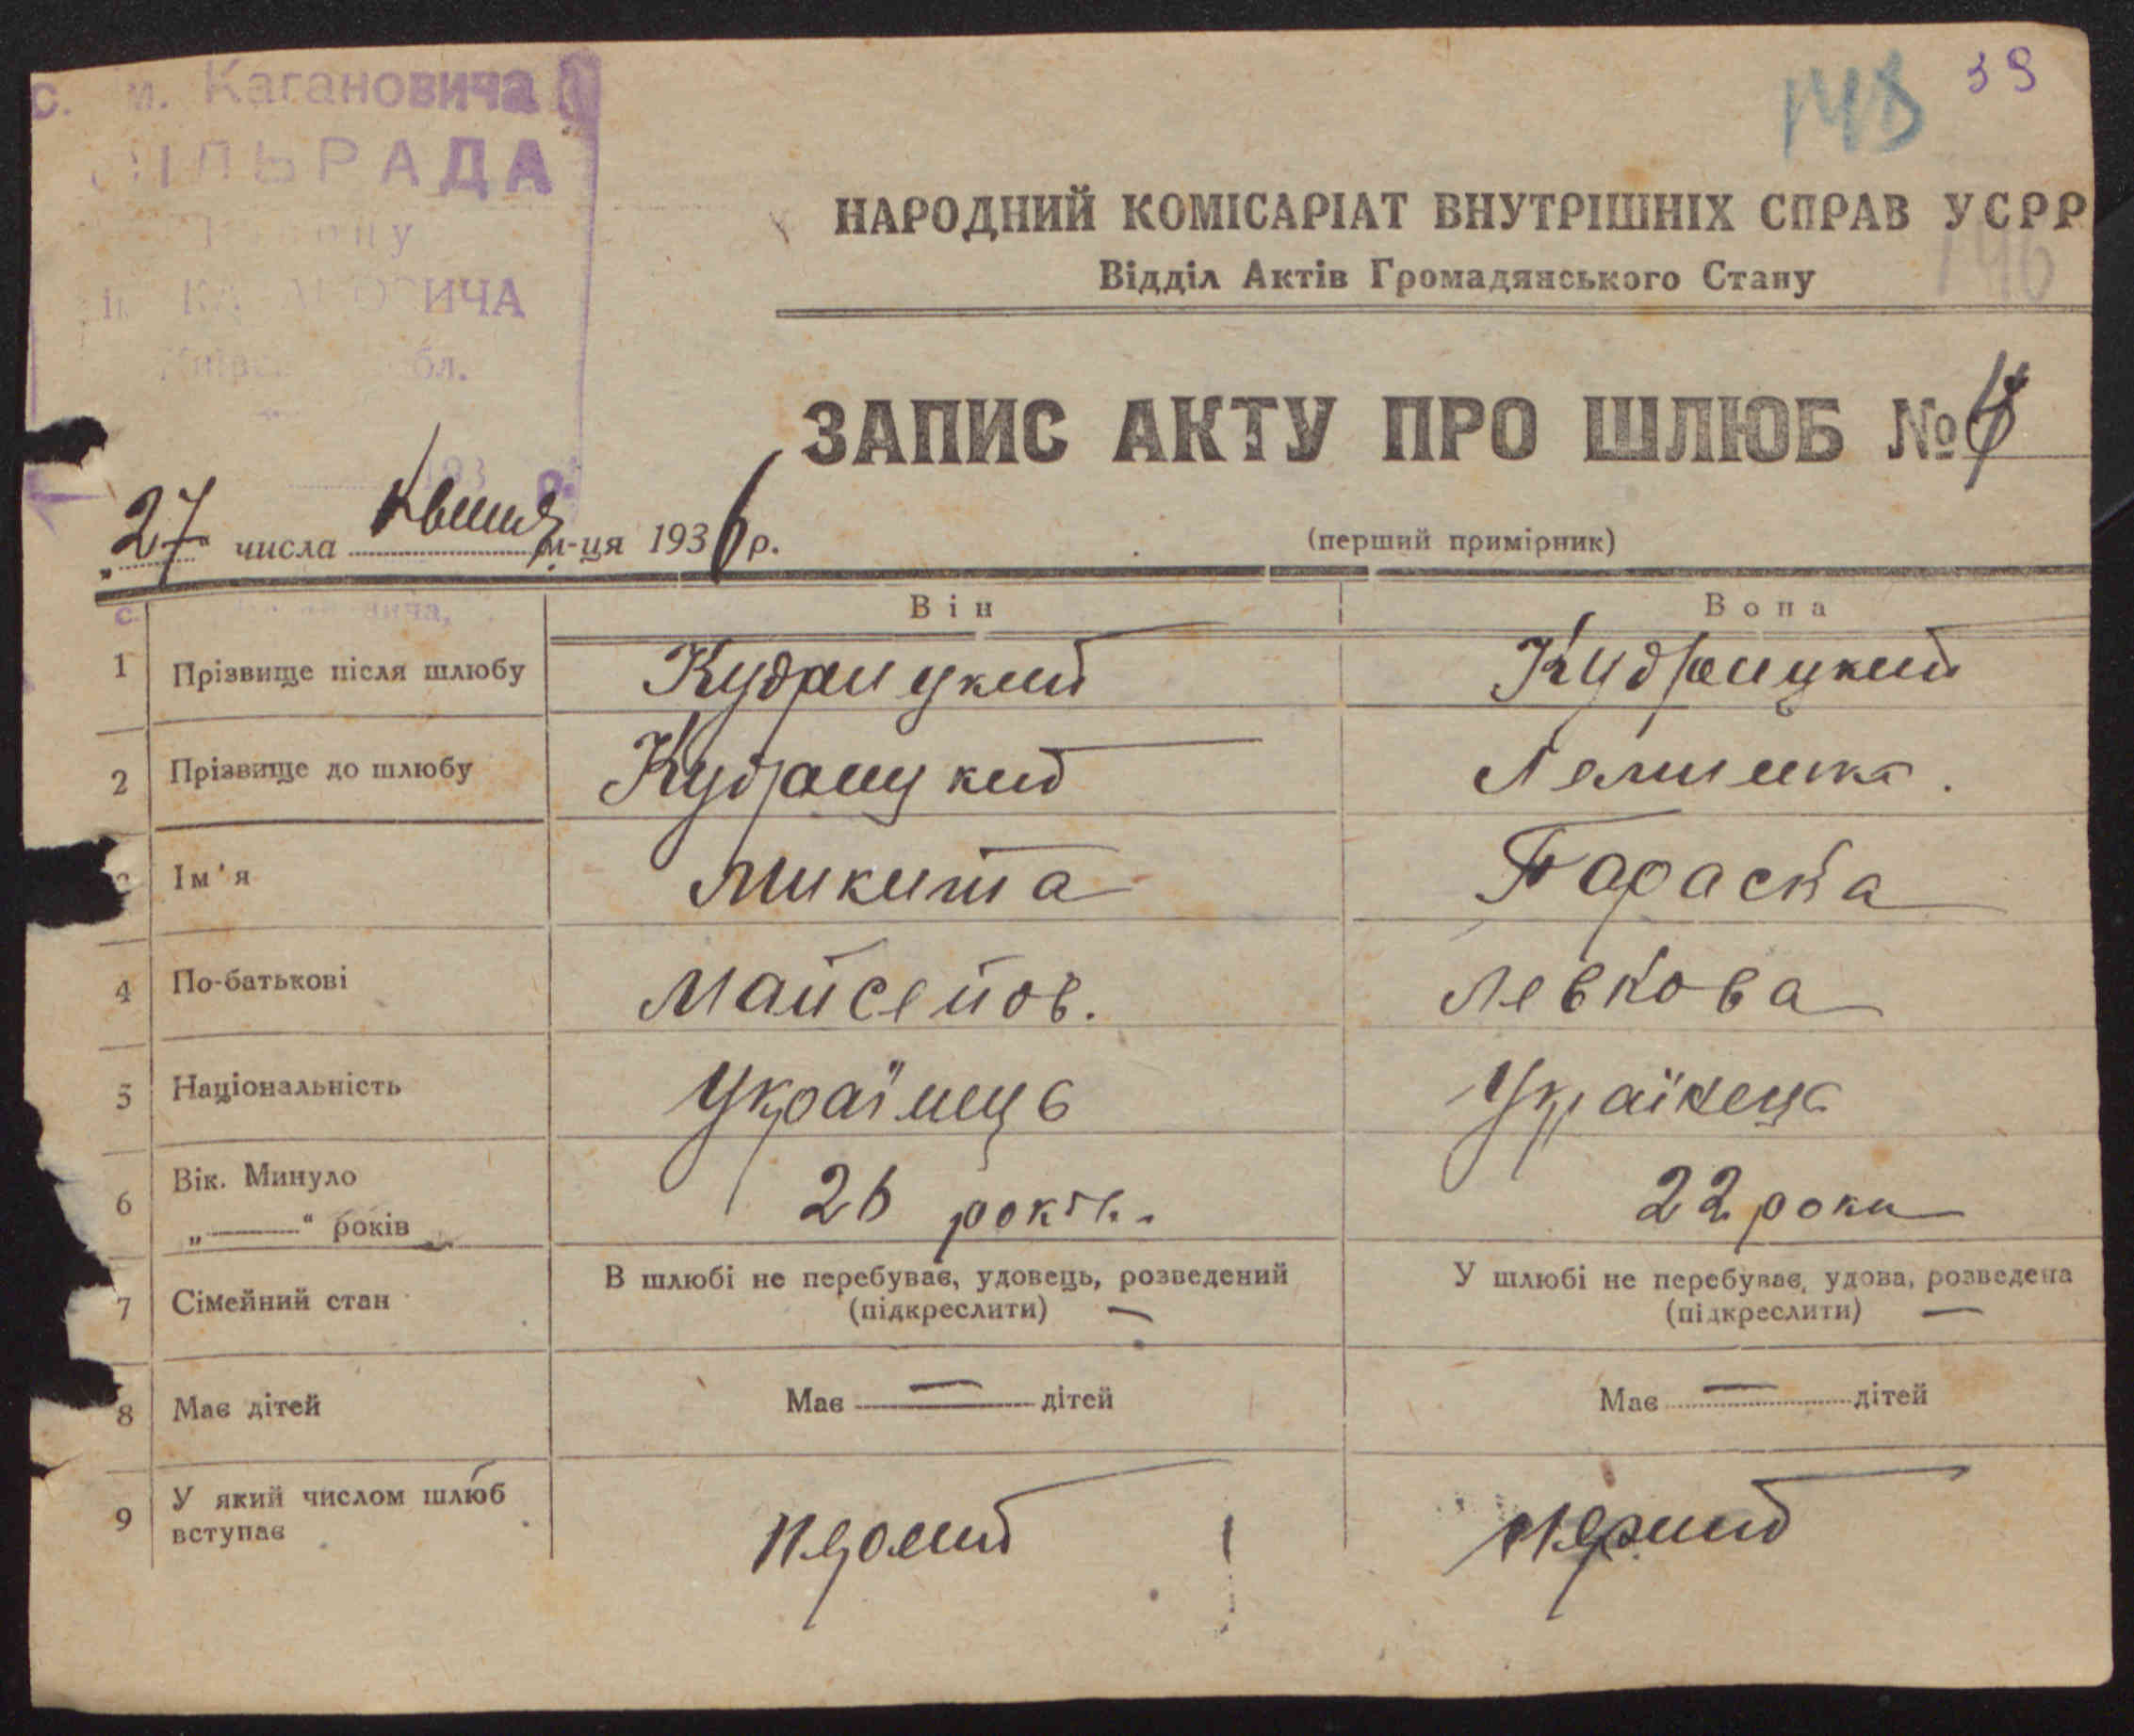 с. ім. Кагановича
СІЛЬРАДА
Району
ім. КАГАНОВИЧА
Київської обл.
148 39
НАРОДНИЙ КОМІСАРІАТ ВНУТРІШНІХ СПРАВ УСРР
146
Відділ Актів Громадянського Стану
ЗАПИС АКТУ ПРО ШЛЮБ №
„27 числа квитня м-ця 1936 р.
(перший примірник)
Він Вона
1 Прізвище після шлюбу Кудрицкий Кудрицкий
2 Прізвище до шлюбу Кудрицкий
Ім'я Микита Параска
4 По-батькові Мойсейов. Левкова
5 Національність Українець Українець
6 Вік. Минуло
„———“ років 26 років. 22 роки
7 Сімейний стан В шлюбі не перебував, удовець, розведений У шлюбі не перебуває, удова, розведена
(підкреслити) — (підкреслити) —
8 Має дітей Має — дітей Має — дітей
9 У який числом шлюб
вступає первий первий